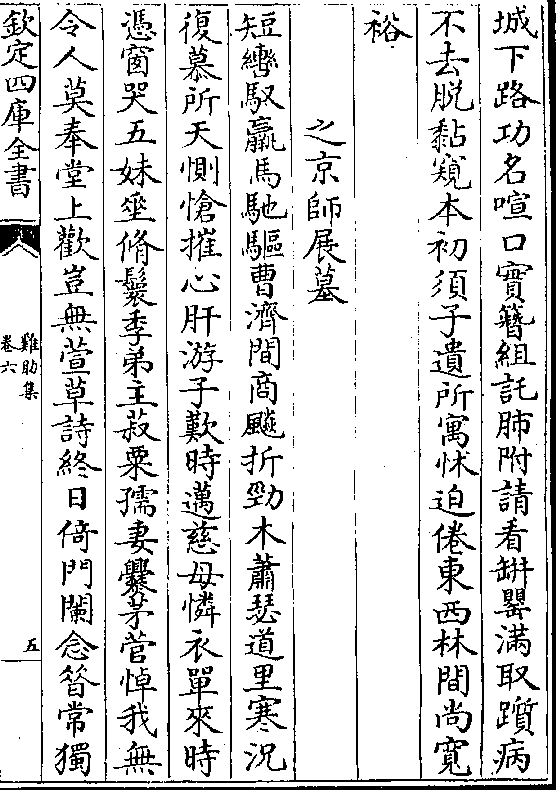 城下路功名喧口實簪組託肺附請看缾罌滿取躓病
不去脱黏窺本初須子遺所寓怵迫倦東西林間尚寛
裕
之京師展墓
短轡馭羸馬馳驅曹濟間商飈折勁木蕭瑟道里寒況
復慕所天惻愴摧心肝游子歎時邁慈母憐衣單來時
憑窗哭五妹坐脩鬟季弟主菽粟孺妻爨茅菅悼我無
令人莫奉堂上歡豈無萱草詩終日倚門闌念昝常獨
欽定四庫全書
雞肋集
卷六
五